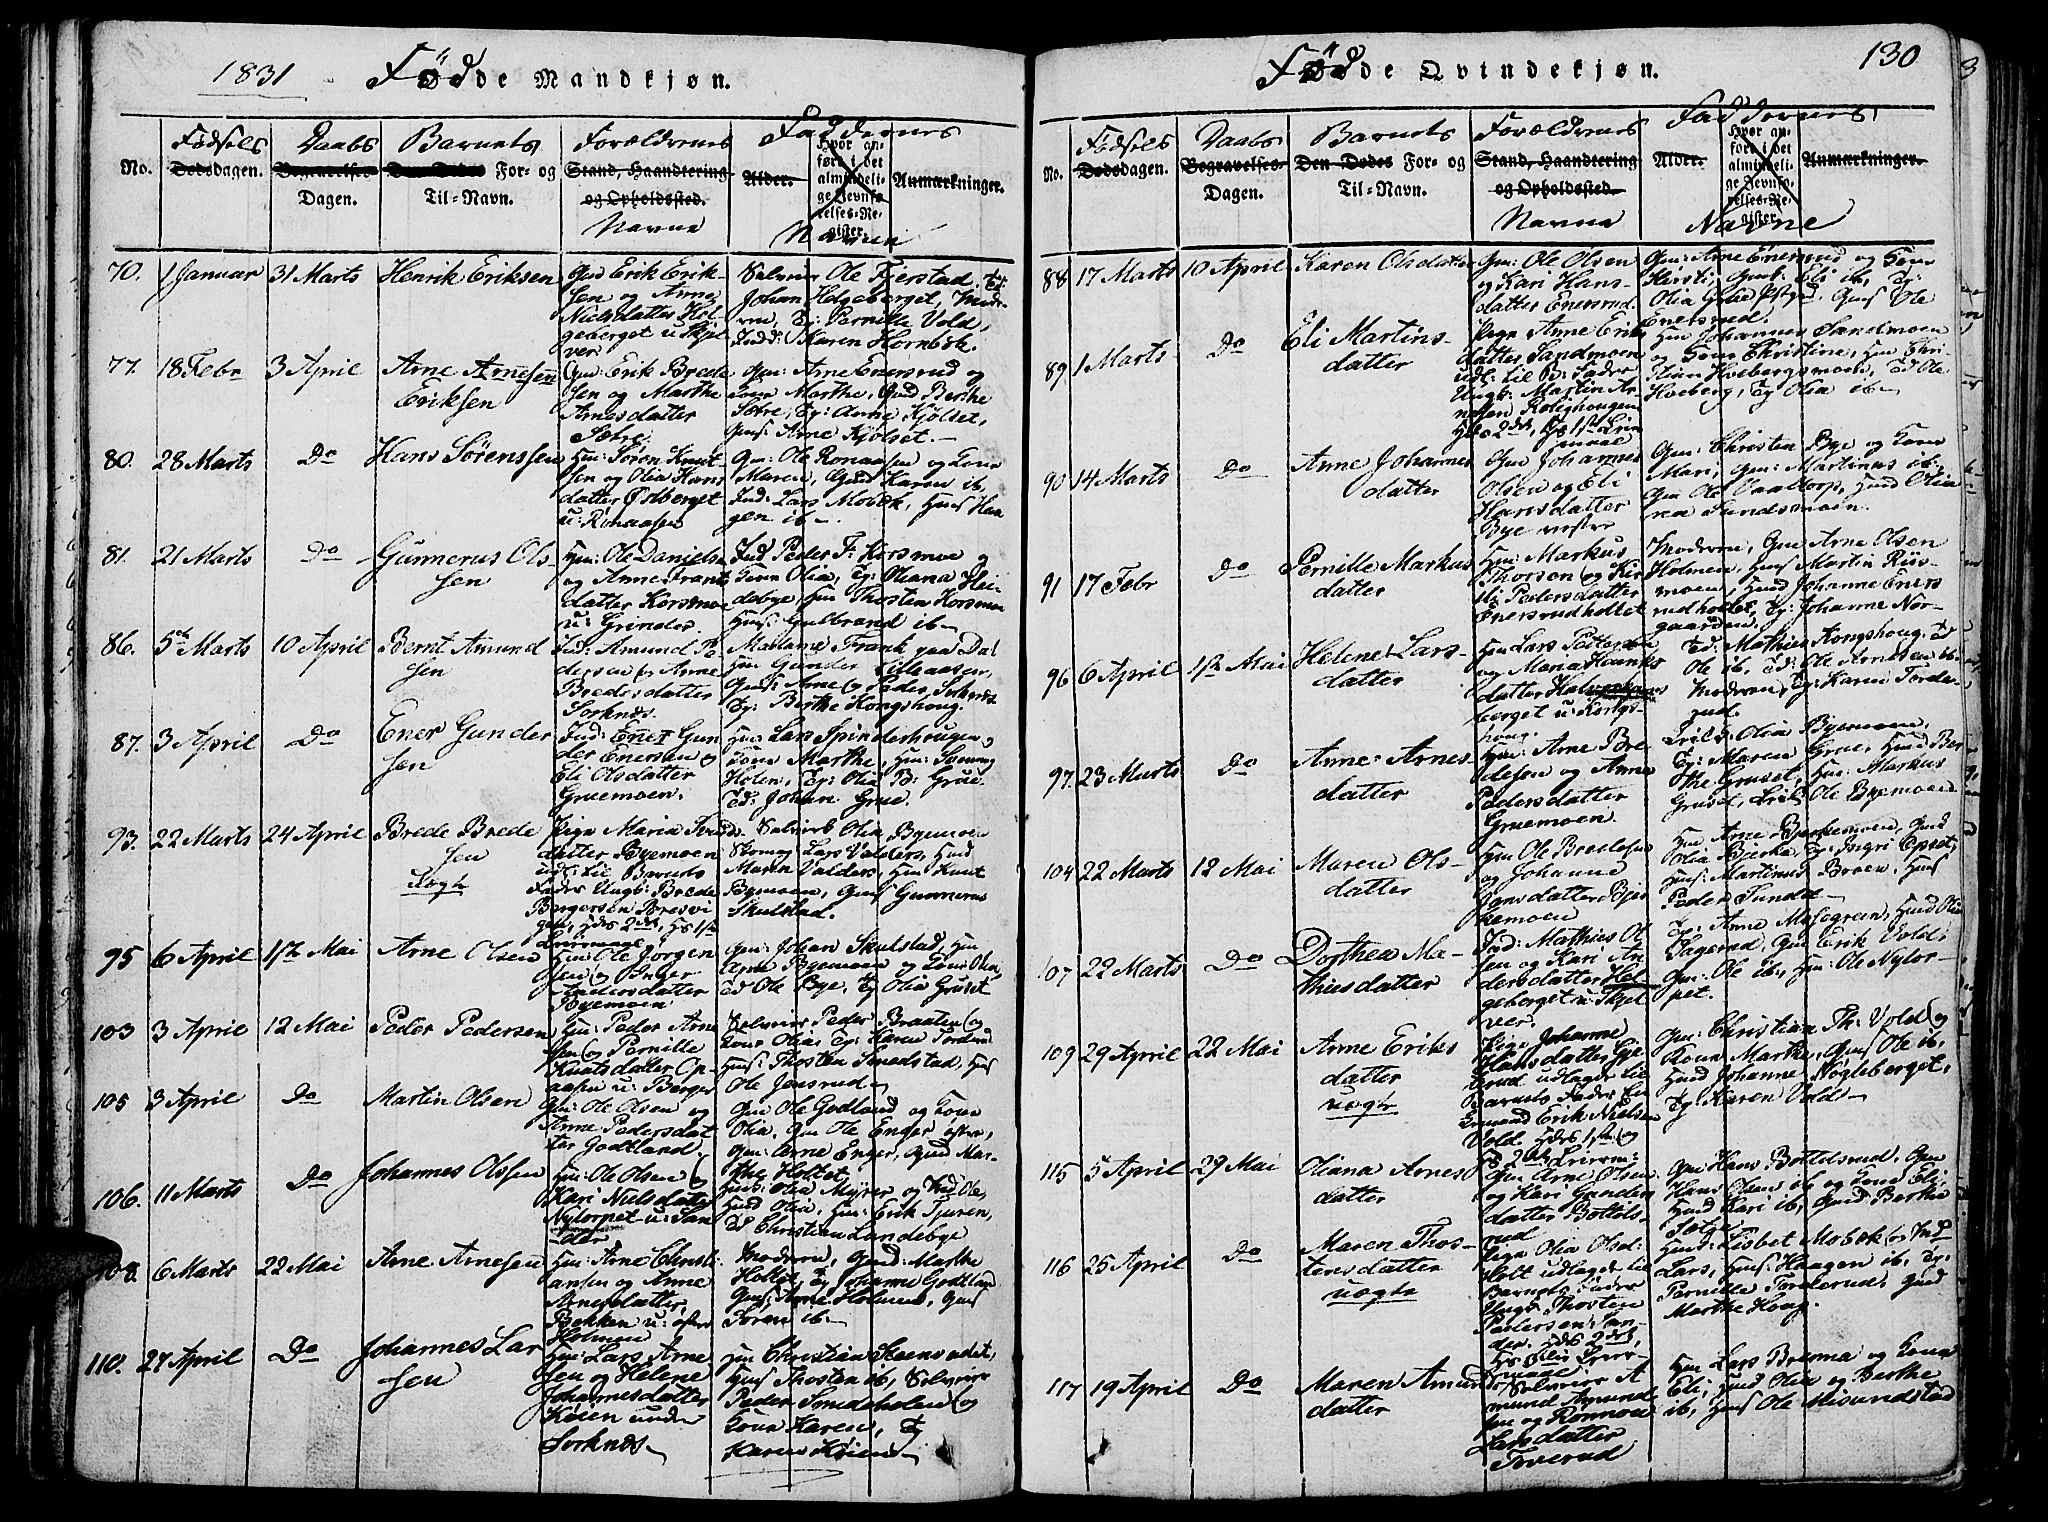 1831
Födde Mandkjøn.
No.
Fødsels
Dødsdagen.
Daabs
Begravelses=
Dagen.
Barnets
Den Dødes For= og
Til=Navn.
Forældrenes
Stand, Haandtering
og Opholdssted.
Navne
Faddernes
Alder.
Hvor an=
ført i det
almindeli=
ge Jevnfø=
relses=Re=
gister.
Anmærkninger.
Navne
70.
1 Januar
31 Marts
Henrik Eriksen
Gm Erik Erik-
sen og Anne
Nielsdatter Hel-
geberget u: Skjel
ver
Selveier Ole Fjerstad, Ed:
Johan Helgeberget, Mode-
ren, Pernille Vold,
Karen Hornbek.
77.
18 Febr
3 April
Arne Arnesen
Eriksen
Gm: Erik Brede
sen og Marthe
Arnesdatter
Sætre
Gm: Arne Enersrud og
Kone Marthe, Gmd Berthe
Sætre, Pg: Anne Kjølset,
Gms: Arne Kjølset.
80.
28 Marts
Do
Hans Sörenssen
Hm: Sören Knut
sen og Olia Hans
datter
u: Ronaasen
Gm: Ole Ronaasen og Kone
Maren, Gmd Karen ib,
Ind: Lars Mobæk, Hms Haa
gen ib
81.
21 Marts
Do
Gunnerus Ols-
sen
Hm: Ole Daniels
og Anne Frants
datter Korsmoe
u: Grinder
Ind Peder F: Korsmoe og
Kone Olia, Pg: Oliana Hei
debye, Hm Thosten Korsmoe
Hms: Gulbrand ib
86.
5te Marts
10 April
Bernt Amund
sen
Ind: Amund Pe
dersen og Anne
Bredesdatter
Sorknæs.
Madame Frank paa Dal
Hm Gunder Lilleaasen,
Gms: Arne og Peder Sorknæs
Pg: Berthe Kongshoug.
87.
3 April
Do
Ener Gunder
sen
Ind: Ener Gun
der Enersen og
Eli Olsdatter
Gruemoen.
Hm: Lars Spinderhougen og
Kone Marthe, Hm:
Holen, Pg: Olia B: Grue
Ed: Johan Grue.
93.
22 Marts
24 April
Brede Brede
sen
uægte
Pige Maria
datter Byemoen
udl: til Barnets
Fader Ungk: Brede
Borgersen Bresvi
gen, Hds 2det, Hs 1ste
Leiermaal
Selveiersk Olia Byemoen
Lars Valders, Hmd
Maren Valders, Hm Knut
Byemoen, Gms Gunnerus
Skulstad.
95
6 April
1ste Mai
Arne Olsen
Hm Ole Jörgen
sen og Inger
Andersdatter
Byemoen
Gm: Johan Skulstad, Hm
Arne Byemoen og Kone Olia,
Ed Ole Bye, Pg Olia Gruset
103
3 April
12 Mai
Peder Pedersen
Hm: Peder Arne
sen og Pernille
Knutsdatter Op-
aasen u: Berger
Selveier Peder Braaten og
Kone Olia, Pg: Karen Torderud
Hms: Thosten Smedstad, Hms
Ole Jonsrud
105
3 April
Do
Martin Olsen
Gm: Ole Olsen og
Anne Pedersdat
ter Godtland
Gm Ole Godtland og Kone
Olia, Gm Ole Enger
Gm: Arne Enger, Gmd Mar-
the Holtet
106.
11 Marts
Do
Johannes Olssen
Hm: Ole Olsen og
Kari Nielsdatter
Nytorpet u: San
der
Hmd: Olia Myrer og Ind Ole,
Hmd Olia, Hm: Erik Tjuren,
Ed Christian Landebye
108.
6 Marts
22 Mai
Arne Arnesen
Hm: Arne Christi
ansen og Anne
Arnesdatter
Bekken u: østre
Holmen
Moderen, Gmd: Marthe
Holtet, Pg Johanne Godtland
Gms: Arne Holmen, Gms
Søren ib
110.
27 April
Do
Johannes Lar
sen
Hm: Lars Arne
sen og Helene
Johannesdatter
Køien under
Sorknæs
Hm Christian Steensrudet,
Hms Thosten ib, Selveier
Peder Smedeholen og
Kone Karen, Pg
Karen Køien
Födde Qvindekjøn.
130
No.
Fødsels
Dødsdagen.
Daabs
Begravelses=
Dagen.
Barnets
Den Dødes For= og
Til=Navn.
Forældrenes
Stand, Haandtering
og Opholdssted.
Navne
Faddernes
Alder.
Hvor an=
ført i det
almindeli=
ge Jevnfø=
relses=Re=
gister.
Anmærkninger.
Navne
88
17 Marts
10 April
Karen Olsdatter
Gm: Ole Olsen
og Kari Hans-
datter Enersrud
Gm: Arne Enersrud og Kone
Kersti, Gmk: Eli ib, Pg
Olia Grue Gms Ole
Enersrud.
89
1 Marts
Do
Eli Martins-
datter
Pige Anne Eriks
datter Sandmoen
udl: til B: Fader
Ungk: Martin Ar
nesen Rolighougen
Hds 2det, Hs 1ste Leier
maal
Hm Johannes Sandmoen
og Kone Christine, Hm Chri-
stian Hvebergsmoen, Ed Ole
Hveberg, Pg Olia ib
90
14 Marts
Do
Anne Johannes
datter
Gm Johannes
Olsen og Eli
Hansdatter
Bye vestre
Gm: Christen Bye og Kone
Mari, Gm: Martinus ib,
Gm Ole Vaaltorp, Hmd Olia
Sundsmoen.
91
17 Febr
Do
Pernille Markus
datter
Hm: Markus
Thorsen og Kir
sti Pedersdatter
Enersrudholtet
Moderen, Gm Arne Olsen
Holmen, Hms Martin Riis-
moen, Hmd Johanne Eners
rudholtet, Pg: Johanne Nor-
gaarden.
96
6 April
1ste Mai
Helene Lars-
datter
Hm Lars Pedersen
og Maria
datter
berget u: Kongs-
houg.
Ed: Mathies Kongshoug, Ed
Ole ib, Ed: Ole Arnesen ib
Moderen, Pg: Karen Torde-
rud.
97.
23 Marts
Do
Anne Arnes
datter
Hm: Arne Bre
desen og Anne
Pedersdatter
Gruemoen
Olia Byemoen,
Pg: Maren Grue, Hmd Ber
the Gruset, Hm: Markus
Gruset, Ole Byemoen
104
22 Marts
12 Mai
Maren Ols-
datter
Hm Ole Bredesen
og Johanne
Jonsdatter Bjer
kemoen
Hm Arne Bjerkemoen, Gmd
Olia Bjerke, Pg: Ingri Opset,
Hms: Martinus Broen, Hms
Peder Sundt
107
22 Marts
Do
Dorthea Ma-
thiesdatter
Ind: Mathies Ol
sen og Kari An
dersdatter Hel-
geberget u: Skjel
ver.
Pg: Anne Masegreen, Hmd Olia
Tagerud, Gm Erik Vold,
Gm: Ole ib, Hm: Ole Nytor-
pet.
109
29 April
22 Mai
Anne Eriks
datter
uægte
Pige Johanne
Hansdatter Gje
rud udlagde til
Barnets Fader En
kemand Erik Nielsen
Vold. Hdes 1ste og
Hs 2det Leierm:
Gm: Christian Th: Vold og
Kone Marthe, Gms Ole ib,
Hmd Johanne Nøgleberget,
Pg: Karen Vold
115
5 April
29 Mai
Oliana Arnes
datter
Gm Arne Olsen
og Kari Gunder
datter Bottols-
rud
Gm Hans Bottolsrud, Gm
Hans Olsen ib og Kone Eli,
Hmd Kari ib, Gmd Berthe
Sætre
116
25 April
Do
Maren Thos-
tensdatter
uægte
Pige Olia Olsd:
Holt udlagde til
Barnets Fader
Ungk: Thosten
Pedersen San-
der. Hds 2det,
Hs 6te Leier-
maal
Hmd: Lisbet Mobæk og Ind
Lars, Hms: Haagen ib, Pg:
Pernille Torkerud, Gmd
Marthe Haap.
117
19 April
Do
Maren Amunds
datter
Selveier A
mund Amund
sen og Rønnoue
Larsdatter
Toverud
Hm Lars Brenna og Kone
Eli, Hmd Olia og Berthe
ib, Hms Ole Misundstad